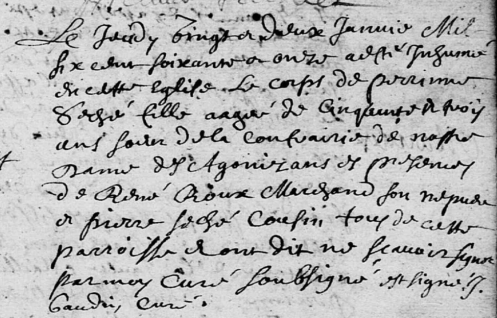 Le Jeudy vingt et deux Janvie Mil
six cent soixante et onze a esté Inhumé
en cette Eglise Le corps de perrinne
Seché fille aagée de Cinquante et trois
ans soeur de la confrairie de nostre
Dame des Agonizans es presences
de René Roux Marchand son nepveu
et pierre seché Cousin tous de cette
parroisse et ont dit ne scavoir signer
par moy Curé soubsigné est signé J.
Gaudin Curé.